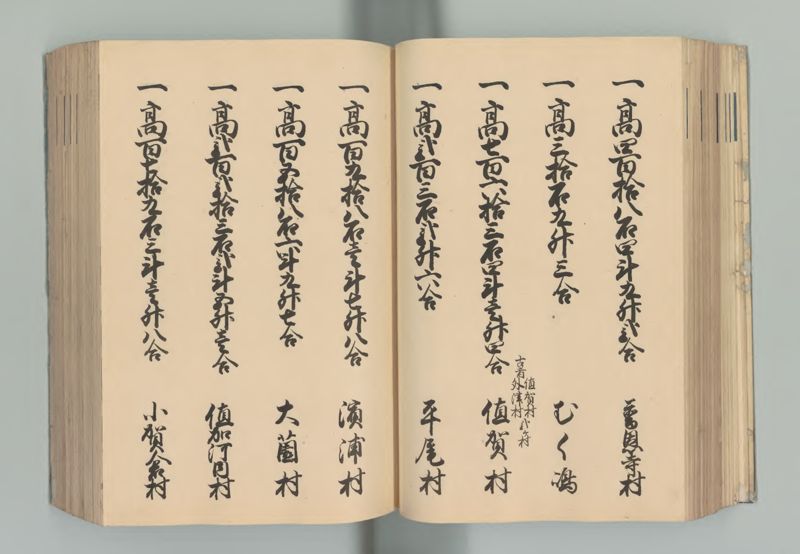 一高四百拾八石四斗九升弐合 普恩寺村
一高三拾石九升三合 むく嶋
一高七百六拾三石四斗壱升四合 値賀村
古者外津村
値賀村弐ケ村
一高弐百三石弐升六合 平尾村
一高百九拾八石壱斗七升八合 濱浦村
一高百五拾八石六斗九升七合 大薗村
一高弐百弐拾三石弐斗五升壱合 値賀河内村
一高百七拾九石三斗壱升八合 小賀倉村